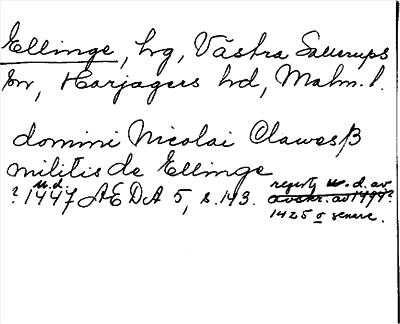 Ellinge, hg, Västra Sallerups
sn, Harjagers hd, Malm. l.
domini Nicolai Clawesß
militis de Ellinge
u.d.
? 1447 ÆDA 5, s. 143. registr u.d. av
avskr. av 1494?
1425 o senare.